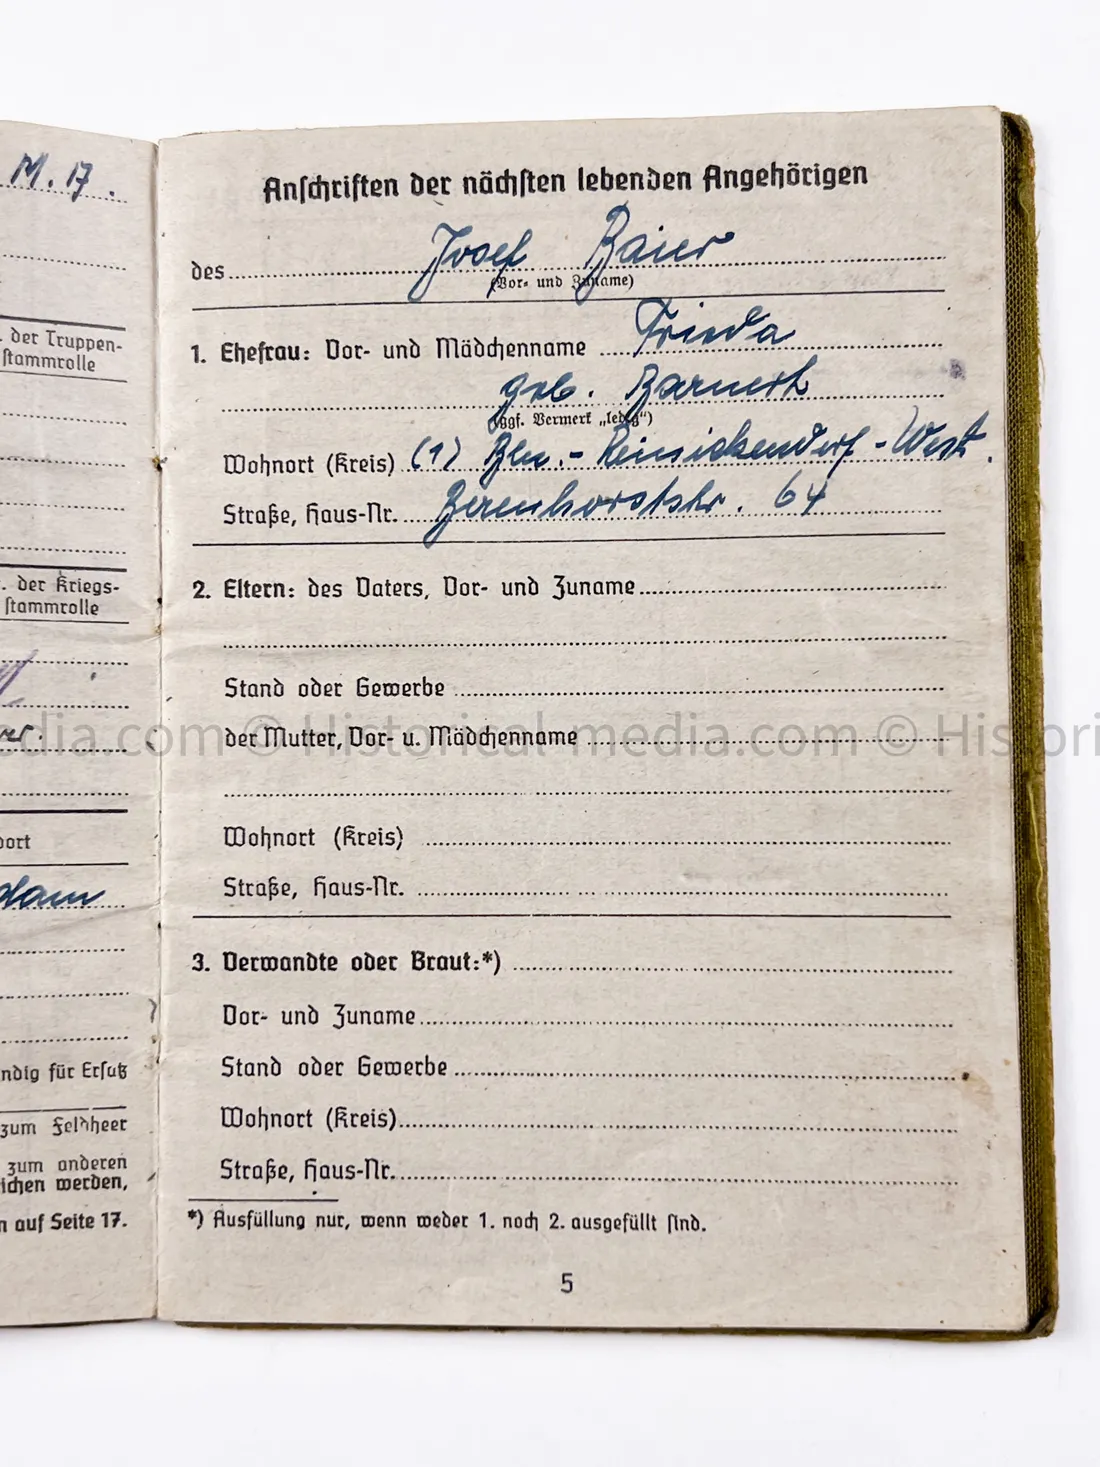 M. 17.
. der Truppen-
stammrolle
. der Kriegs-
stammrolle
ort
ndig für Ersatz
zum Feldheer
zum anderen
ichen werden,
n auf Seite 17.
Anschriften der nächsten lebenden Angehörigen
des Josef Baier
(Vor- und Zuname)
1. Ehefrau: Vor- und Mädchenname Frieda
geb.
(ggf. Vermerk „ledig“)
Wohnort (Kreis) (1) Bln.-Reinickendorf-West.
Straße, Haus-Nr. Berenhorststr. 64
2. Eltern: des Vaters, Vor- und Zuname
Stand oder Gewerbe
der Mutter, Vor- u. Mädchenname
Wohnort (Kreis)
Straße, Haus-Nr.
3. Verwandte oder Braut:*)
Vor- und Zuname
Stand oder Gewerbe
Wohnort (Kreis)
Straße, Haus-Nr.
*) Ausfüllung nur, wenn weder 1. noch 2. ausgefüllt sind.
5
edia.com © Historical-media.com © Histori